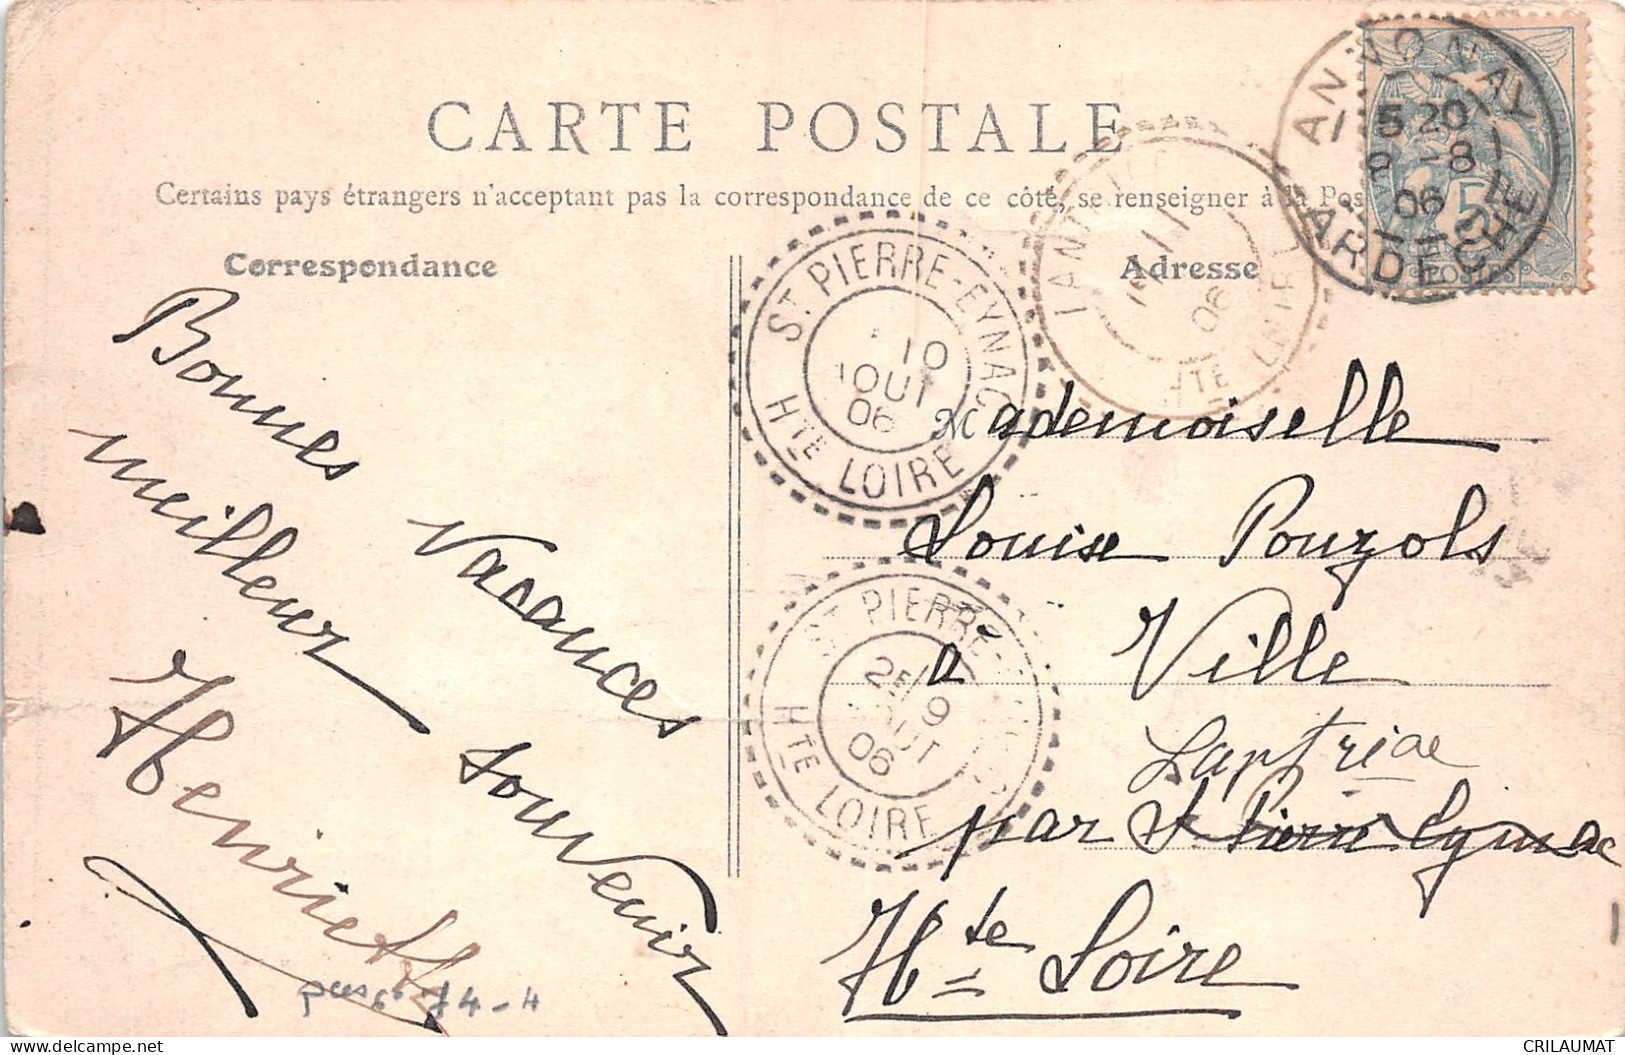 CARTE POSTALE
Certains pays étrangers n'acceptant pas la correspondance de ce côté, se renseigner à la Pos
Correspondance
Adresse
ANNONAY
5 20
8 -8
06
ARDECHE
5
POSTES
ST PIERRE-EYNAC
10
AOUT
06
HTE LOIRE
LANT
06
HTE LOIRE
ST PIERRE-
2E 9
OUT
06
HTE LOIRE
Bonnes Vacances
meilleur souvenir
Henriette
Mademoiselle
Louise Pouzols
à Ville
Lantriac
par St Pierre Eynac
Hte Loire
74-4
CRILAUMAT